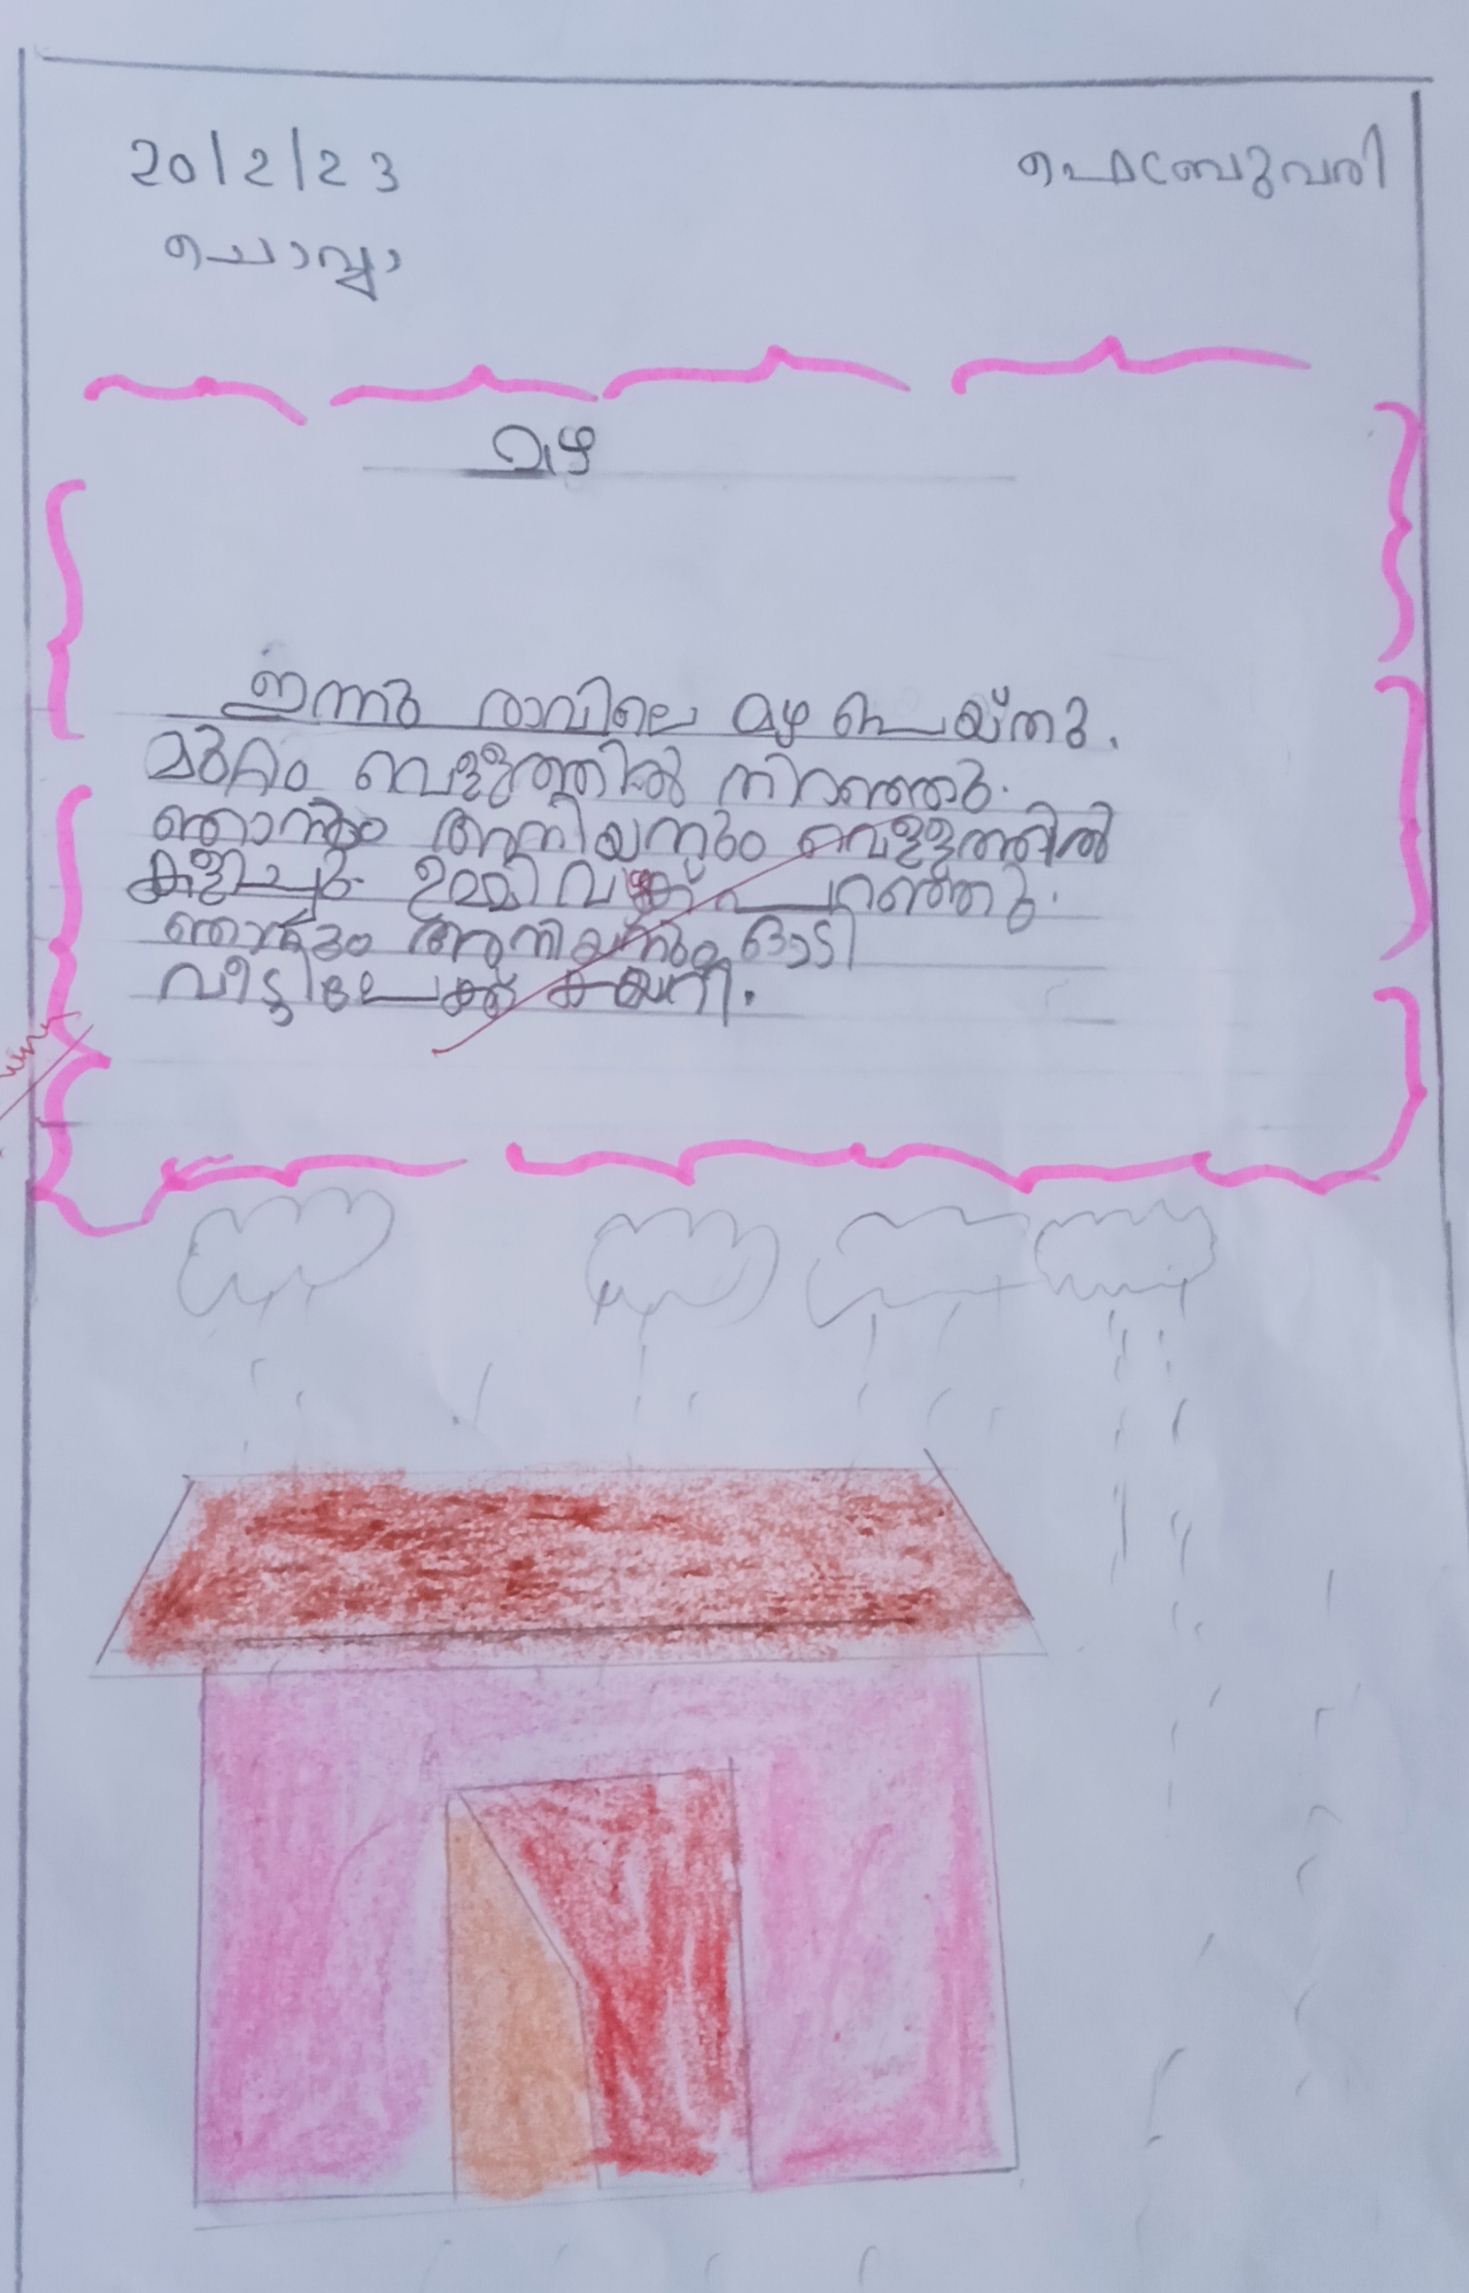 20/2/23
ഫെബ്രുവരി
ചൊവ്വാ
മഴ
ഇന്നു രാവിലെ മഴ പെയ്തു.
മുറ്റം വെള്ളത്തിൽ നിറഞ്ഞു.
ഞാനും അനിയനും വെള്ളത്തിൽ
കളിച്ചു. ഉമ്മി വഴക്ക് പറഞ്ഞു.
ഞാനും അനിയനും ഓടി
വീട്ടിലേക്ക് കയറി.